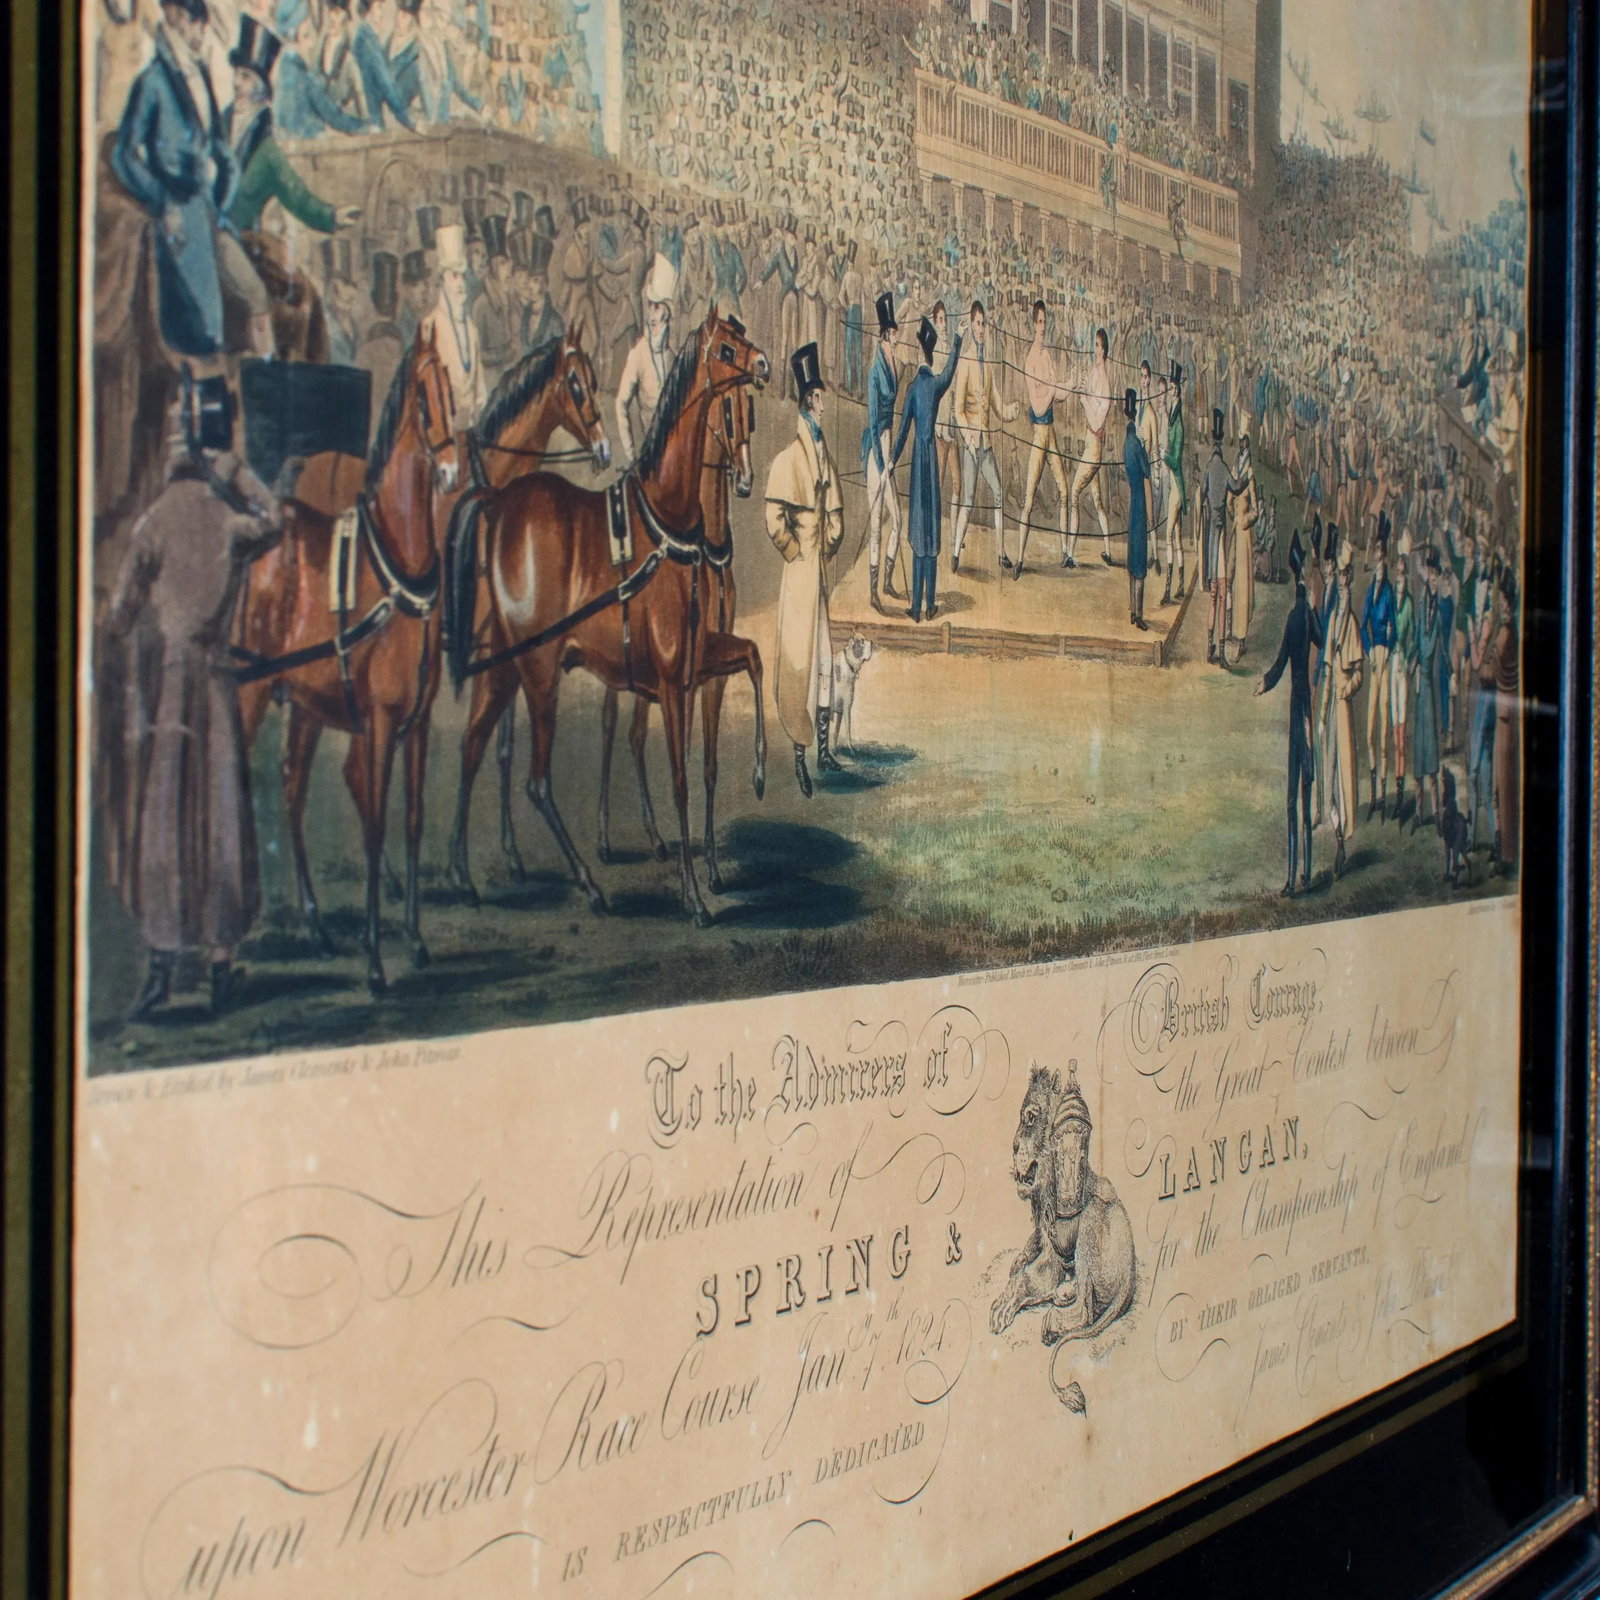 Drawn & Etched by James Clements & John Pitman.
Worcester. Published March 25, 1824, by James Clements & John Pitman, & at
To the Admirers of British Courage,
This Representation of the Great Contest between
SPRING & LANGAN,
upon Worcester Race Course Jany. 7th. 1824. for the Championship of England
IS RESPECTFULLY DEDICATED BY THEIR OBLIGED SERVANTS,
James Clements & John